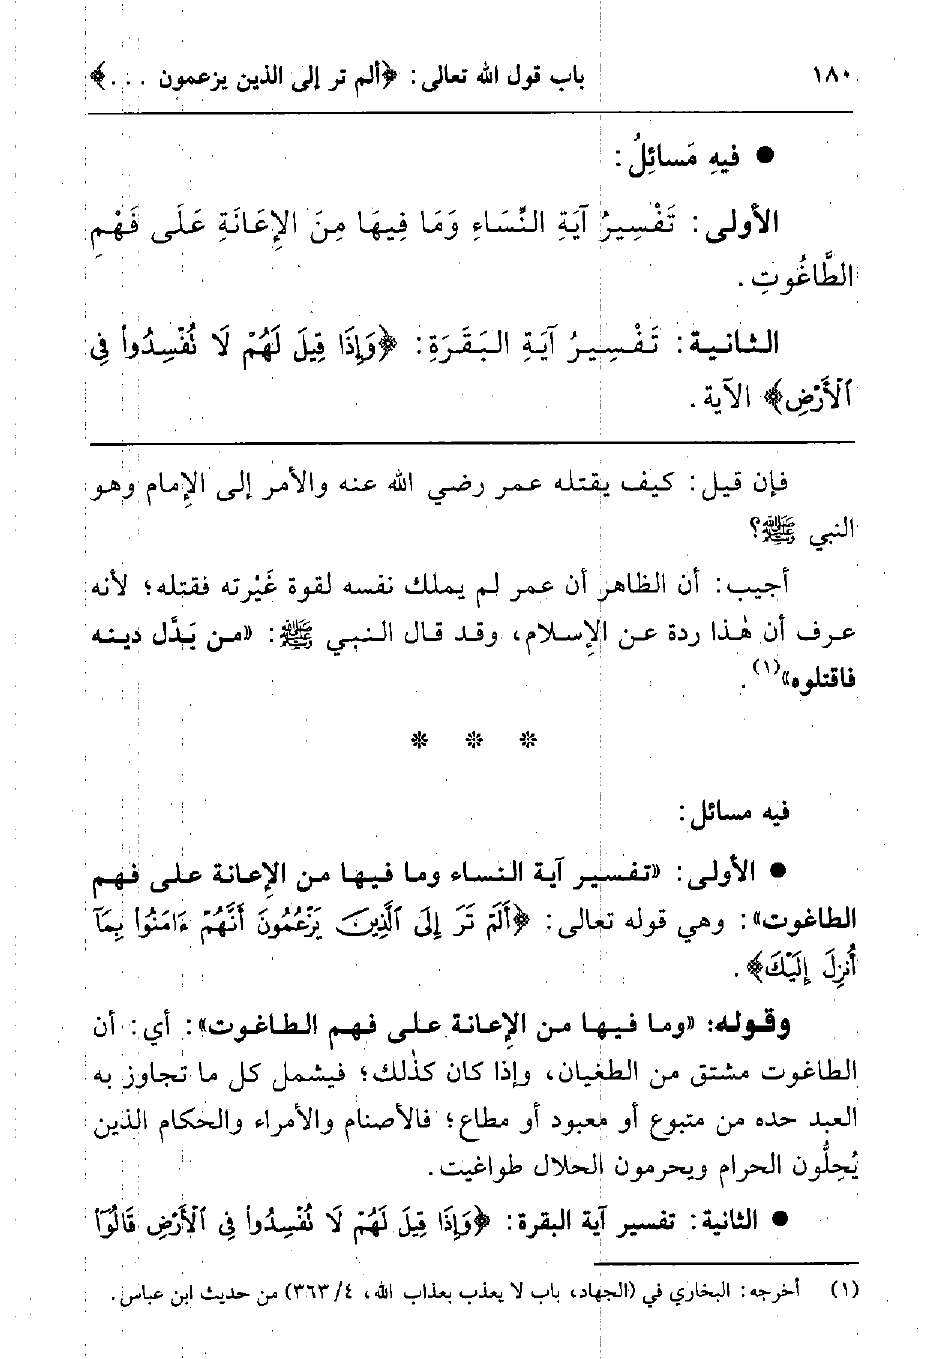 ١٨٠ باب قول الله تعالى: ﴿ألم تر إلى الذين يزعمون . . .﴾
● فيهِ مَسائِلُ:
الأولى: تَفْسِيرُ آيَةِ النِّسَاءِ وَمَا فِيهَا مِنَ الإِعَانَةِ عَلَى فَهْمِ
الطَّاغُوتِ.
الثانية: تَفْسِيرُ آيَةِ البَقَرَةِ: ﴿وَإِذَا قِيلَ لَهُمْ لَا نُفْسِدُوا فِى
ٱلْأَرْضِ﴾ الآية.
فإن قيل: كيف يقتله عمر رضي الله عنه والأمر إلى الإمام وهو
النبي ﷺ؟
أجيب: أن الظاهر أن عمر لم يملك نفسه لقوة غَيْرته فقتله؛ لأنه
عرف أن هٰذا ردة عن الإسلام، وقد قال النبي ﷺ: «من بَدَّل دينه
فاقتلوه»(١).
* * *
فيه مسائل:
● الأولى: «تفسير آية النساء وما فيها من الإعانة على فهم
الطاغوت»: وهي قوله تعالى: ﴿أَلَمْ تَرَ إِلَى ٱلَّذِينَ يَزْعُمُونَ أَنَّهُمْ ءَامَنُوا بِمَآ
أُنزِلَ إِلَيْكَ﴾.
وقوله: «وما فيها من الإعانة على فهم الطاغوت»: أي: أن
الطاغوت مشتق من الطغيان، وإذا كان كذٰلك؛ فيشمل كل ما تجاوز به
العبد حده من متبوع أو معبود أو مطاع؛ فالأصنام والأمراء والحكام الذين
يُحِلُّون الحرام ويحرمون الحلال طواغيت.
● الثانية: تفسير آية البقرة: ﴿وَإِذَا قِيلَ لَهُمْ لَا نُفْسِدُوا فِى ٱلْأَرْضِ قَالُوٓا
(١) أخرجه: البخاري في (الجهاد، باب لا يعذب بعذاب الله، ٤/ ٣٦٣) من حديث ابن عباس.